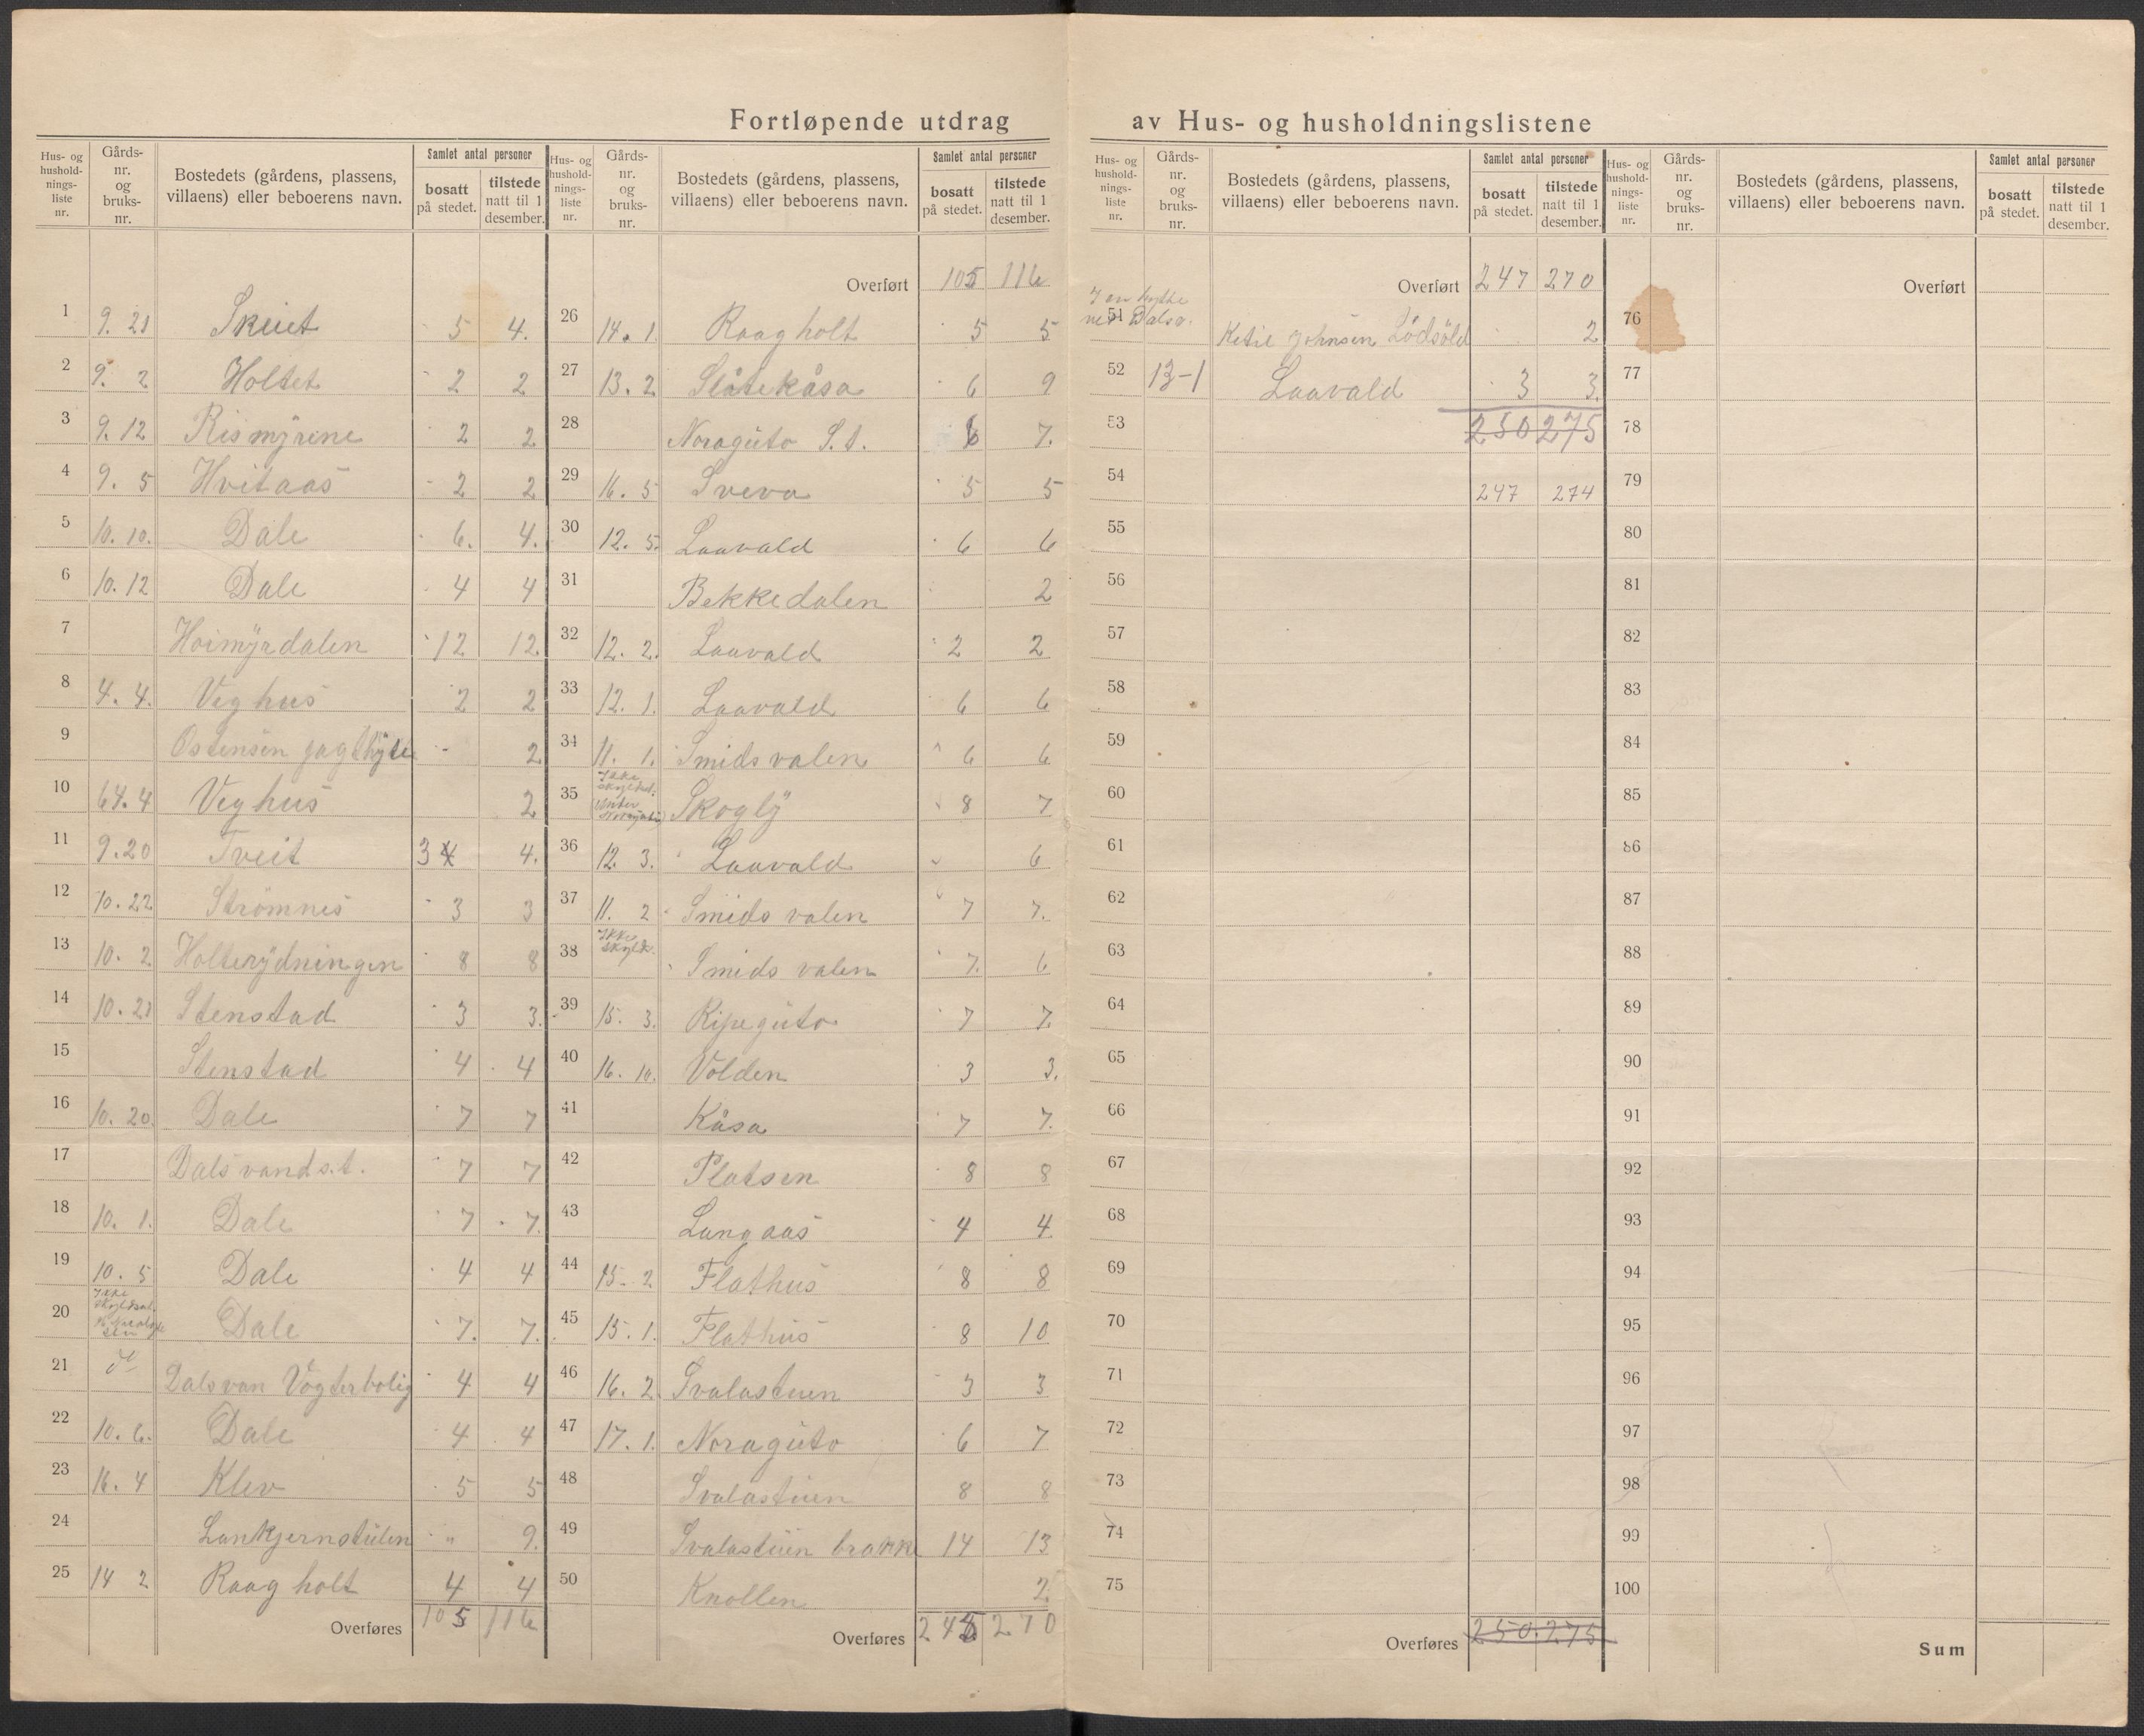 Fortløpende utdrag av Hus- og husholdningslistene
Hus- og hushold-nings-liste nr. Gårds-nr. og bruks-nr. Bostedets (gårdens, plassens, villaens) eller beboerens navn. Samlet antal personer bosatt på stedet. tilstede natt til 1 desember.
1 9. 21 Skuet 5 4.
2 9. 2 Holtet 2 2
3 9. 12 Rismyrene 2 2
4 9. 5 Hvitaas 2 2
5 10. 10. Dale 6. 4.
6 10. 12 Dale 4 4
7 Hoimyrdalen 12 12
8 4. 4. Veghus 2 2
9 Ostensen jagthytte - 2
10 64. 4 Veghus 2
11 9. 20 Tveit 3 4 4.
12 10. 22 Strömnes 3 3
13 10. 2 Holterydningen 8 8
14 10. 21 Stenstad 3 3.
15 Stenstad 4 4
16 10. 20. Dale 7 7
17 Dalsvand s.t. 7 7
18 10. 1. Dale 7 7.
19 10. 5 Dale 4 4
20 Ikke Dale 7. 7.
21 Dalsvan Vögterbolig 4 4
22 10. 6. Dale 4 4
23 16. 4 Klev 5 5
24 Lankjernstulen " 9.
25 14 2 Raagholt 4 4
Overføres 105 116
Hus- og hushold-nings-liste nr. Gårds-nr. og bruks-nr. Bostedets (gårdens, plassens, villaens) eller beboerens navn. Samlet antal personer bosatt på stedet. tilstede natt til 1 desember.
Overført 105 116
26 14. 1. Raagholt 5 5
27 13. 2. Slåtekåsa 6 9
28 Noraguto S.t. 6 7.
29 16. 5 Sveva 5 5
30 12. 5. Laavald 6 6
31 Bekkedalen 2
32 12. 2. Laavald 2 2
33 12. 1. Laavald 6 6
34 11. 1. Smidsvalen 6 6
35 Ikke skyldsat. under Skogly 8 7
36 12. 3. Laavald 6
37 11. 2 Smidsvalen 7 7.
38 Ikke skylds. Smidsvalen 7. 6
39 15. 3. Ripeguto 7 7
40 16. 10. Volden 3 3.
41 Kåsa 7 7.
42 Platsen 8 8
43 Langaas 4 4
44 15. 2 Flathus 8 8
45 15. 1. Flathus 8 10
46 16. 2 Svalastuen 3 3
47 17. 1. Noraguto 6 7
48 Svalastuen 8 8
49 Svalastuen brakke 14 13
50 Knollen 2.
Overføres 270
Hus- og hushold-nings-liste nr. Gårds-nr. og bruks-nr. Bostedets (gårdens, plassens, villaens) eller beboerens navn. Samlet antal personer bosatt på stedet. tilstede natt til 1 desember.
Overført 247 270
I en hytte
51 ved Dalsv. Ketil Johnsen 2
52 13-1 Laavald 3 3.
53 250 275
54 247 274
55
56
57
58
59
60
61
62
63
64
65
66
67
68
69
70
71
72
73
74
75
Overføres 250. 275
Hus- og hushold-nings-liste nr. Gårds-nr. og bruks-nr. Bostedets (gårdens, plassens, villaens) eller beboerens navn. Samlet antal personer bosatt på stedet. tilstede natt til 1 desember.
Overført
76
77
78
79
80
81
82
83
84
85
86
87
88
89
90
91
92
93
94
95
96
97
98
99
100
Sum